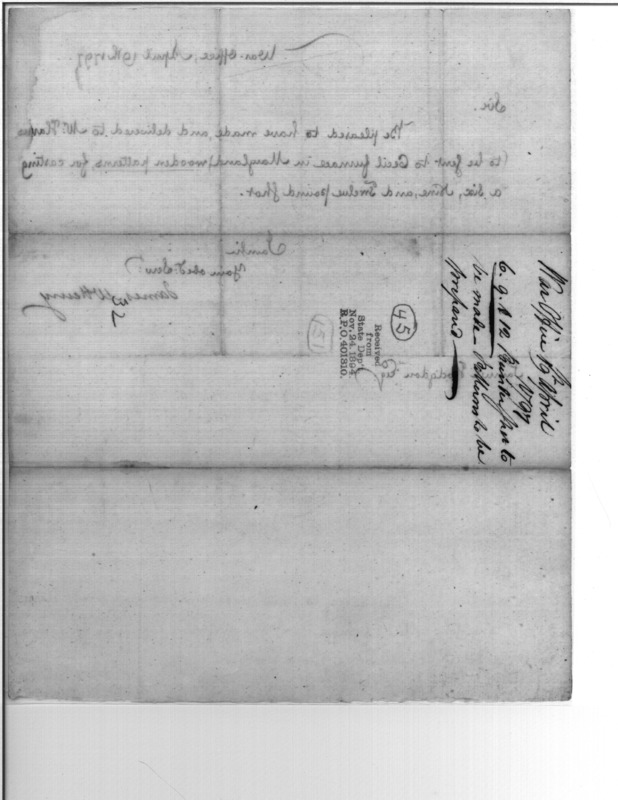 War Office, April 19th 1797.
Sir.
Be pleased to have made, and delivered to Mr Harris
(to be sent to Cecil furnace in Maryland) wooden patterns, for casting
a six, nine, and Twelve pound shot.
I am Sir
Your obedt Serv.
James McHenry
Hodgdon Esq
War Office 19th April
1797
6. 9. & 12 shot to
be made Patterns to be
prepared
45
Received
from
State Dep't
Nov. 24. 1894
R.P.O. 401310.